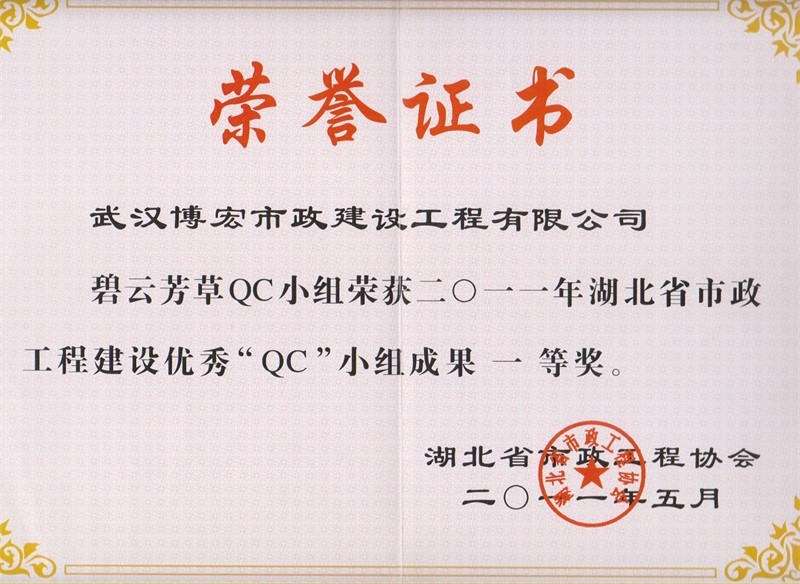 荣誉证书
武汉博宏市政建设工程有限公司
碧云芳草QC小组荣获二〇一一年湖北省市政
工程建设优秀“QC”小组成果 一 等奖。
湖北省市政工程协会
二〇一一年五月
湖北省市政工程协会